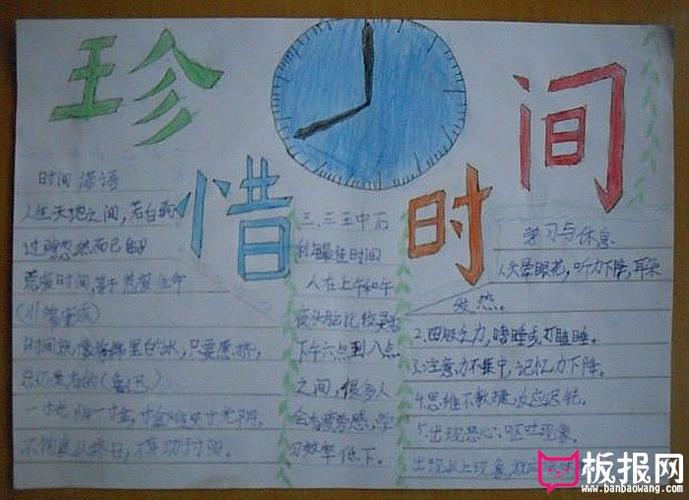 珍惜时间
时间谚语
人生天地之间,若白驹
过隙忽然而已
荒废时间,等于荒废生命
(川端康成)
时间就像海绵里的水,只要愿挤,
总还是有的(鲁迅)
一寸光阴一寸金,寸金难买寸光阴。
不饱食以终日,不弃功于寸阴。
三、
利用最佳时间
人在上午和午
夜头脑比较灵活
下午六点到八点
之间,很多人
会有疲劳感,学
习效率低下。
学习与休息
1、头晕眼花,听力下降,耳朵
发热。
2.四肢乏力,嗜睡或打瞌睡。
3.注意力不集中,记忆力下降。
4.思维不敏捷,反应迟钝。
5.出现恶心、呕吐现象。
出现以上现象,
板报网
www.banbaowang.com